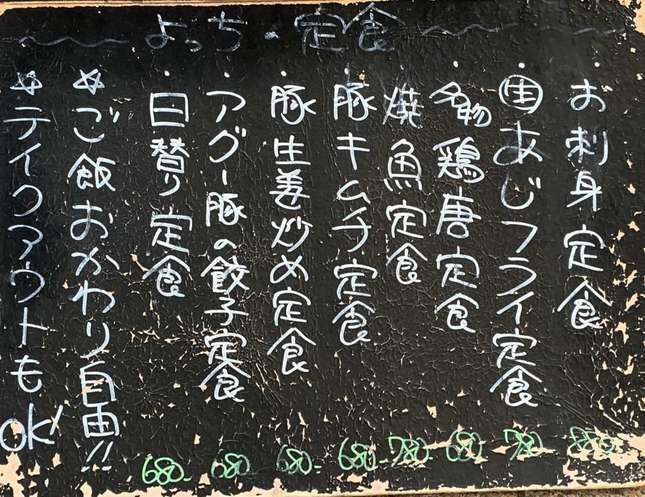 よっち・定食
・お刺身定食 880-
・生あじフライ定食 780-
・名物鶏唐定食 680-
・焼魚定食 780-
・豚キムチ定食 680-
・豚生姜炒め定食 680-
・アグー豚の餃子定食 680-
・日替り定食 680-
☆ご飯おかわり自由!!
☆テイクアウトもOK!